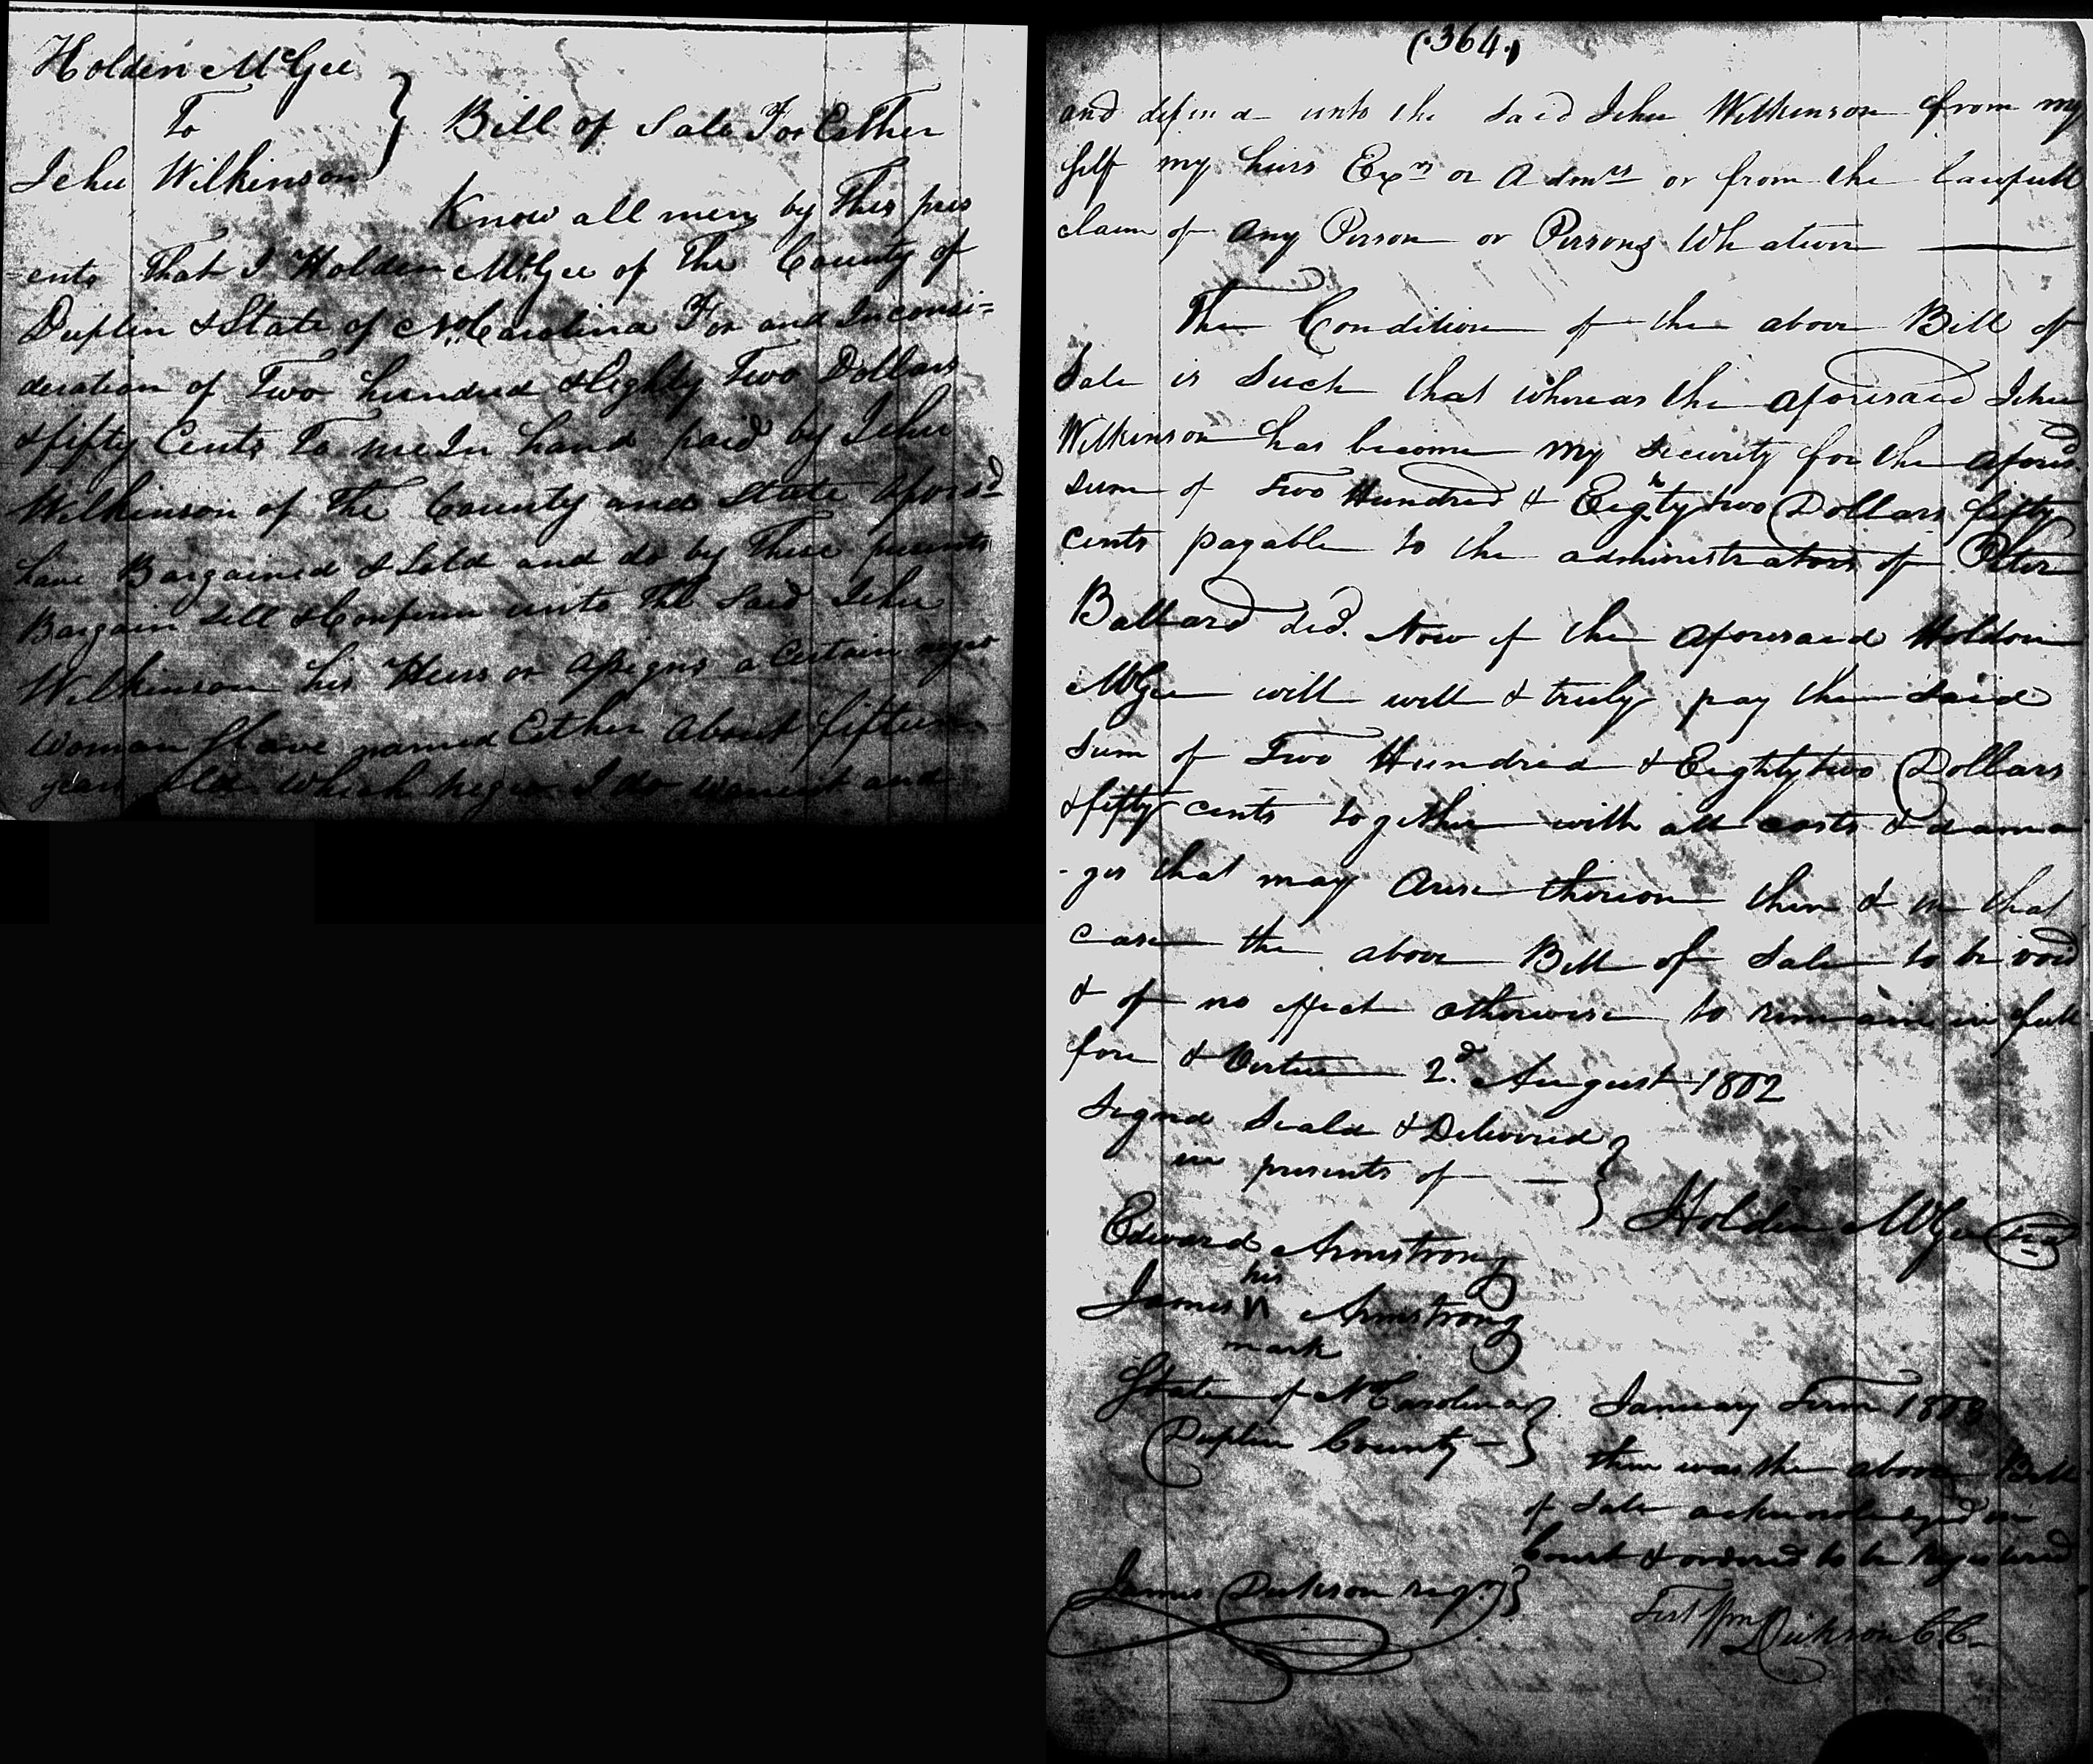 Holden McGee
To
Jehu Wilkinson } Bill of Sale For Esther
Know all men by Thes pres
ents That I Holden McGee of The County of
Duplin & State of No. Carolina For and Inconsi=
deration of Two hundred & Eighty Two Dollars
& fifty Cents To me In hand paid by Jehu
Wilkinson of The County and State aforsd
have Bargained & Sold and do by These presents
Bargain Sell & Confirm unto The Said Jehu
Wilkinson his Heirs or assigns a Certain negro
woman Slave named Esther About fifteen
years old which negro I do warrent and
(364)
and defend unto the said Jehu Wilkinson from my
self my heirs Exrs or Admrs or from the lawfull
claim of any Person or Persons Whatever
The Condition of the above Bill of
Sale is Such that whereas the aforesaid Jehu
Wilkinson has become my Security for the afores
sum of Two Hundred & Eighty two Dollars fifty
cents payable to the administrators of Peter
Ballard decd. Now if the aforesaid Holden
McGee will well & truly pay the said
sum of Two Hundred & Eighty two Dollars
& fifty cents together with all costs & dama
-ges that may Arise thereon then & in that
case the above Bill of Sale to be void
& of no effect otherwise to remain in full
force & Virtue 2d August 1802
Signed Seald & Delivered
in presents of
Holden McGee Seal
Edward Armstrong
his
James Armstrong
mark
State of No Carolina } January Term 1803
Duplin County - } then was the above Bill
of Sale acknowledged in
Court & ordered to be Registered
James Dickson Regr }
Test Wm Dickson C.C.